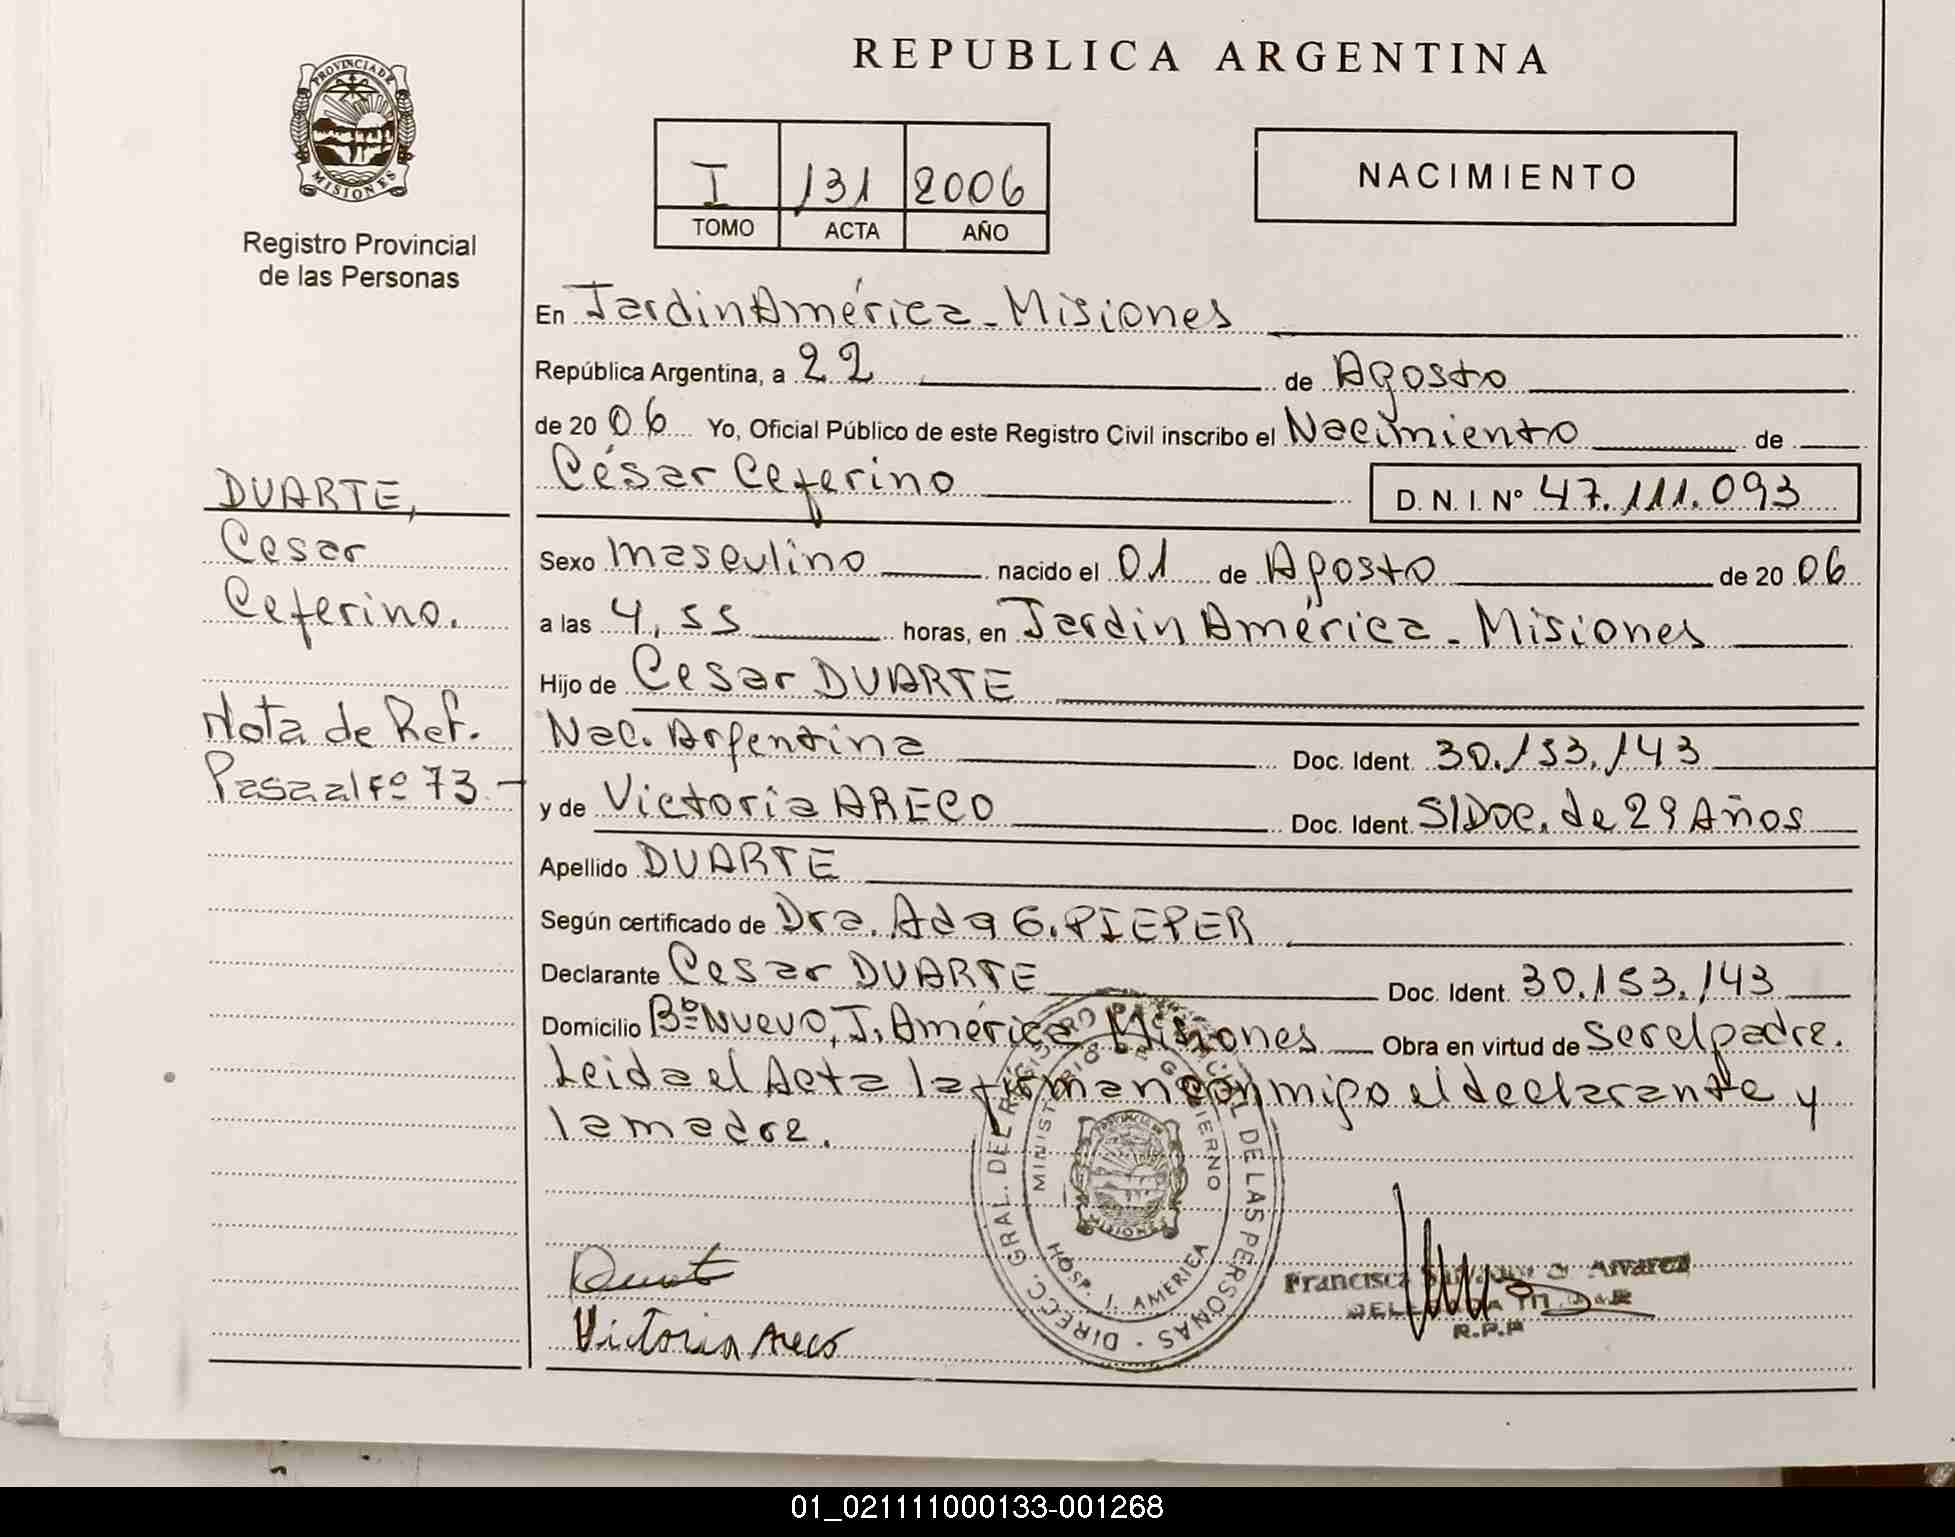 REPUBLICA ARGENTINA
PROVINCIA DE
MISIONES
Registro Provincial
de las Personas
I 131 2006
TOMO ACTA AÑO
NACIMIENTO
En Jardin América - Misiones
República Argentina, a 22 de Agosto
de 20 06 Yo, Oficial Público de este Registro Civil inscribo el Nacimiento de
César Ceferino D. N. I. Nº 47.111.093
Sexo masculino nacido el 01 de Agosto de 20 06
a las 4,55 horas, en Jardin América - Misiones
Hijo de Cesar DUARTE
Nac. Argentina Doc. Ident. 30.153.143
y de Victoria ARECO Doc. Ident. S/Doc. de 29 Años
Apellido DUARTE
Según certificado de Dra. Ada G. PIEPER
Declarante Cesar DUARTE Doc. Ident. 30.153.143
Domicilio Bº Nuevo, J. América Misiones Obra en virtud de ser el padre.
Leida el Acta la firman conmigo el declarante y
la madre.
DUARTE,
Cesar
Ceferino.
Nota de Ref.
Pasa al Fº 73.-
DIRECC. GRAL. DEL REGISTRO PROVINCIAL DE LAS PERSONAS
MINISTERIO DE GOBIERNO
HOSP. J. AMERICA
MISIONES
Duart
Victoria Areco
Francisca Alvarez
R.P.P
01_021111000133-001268